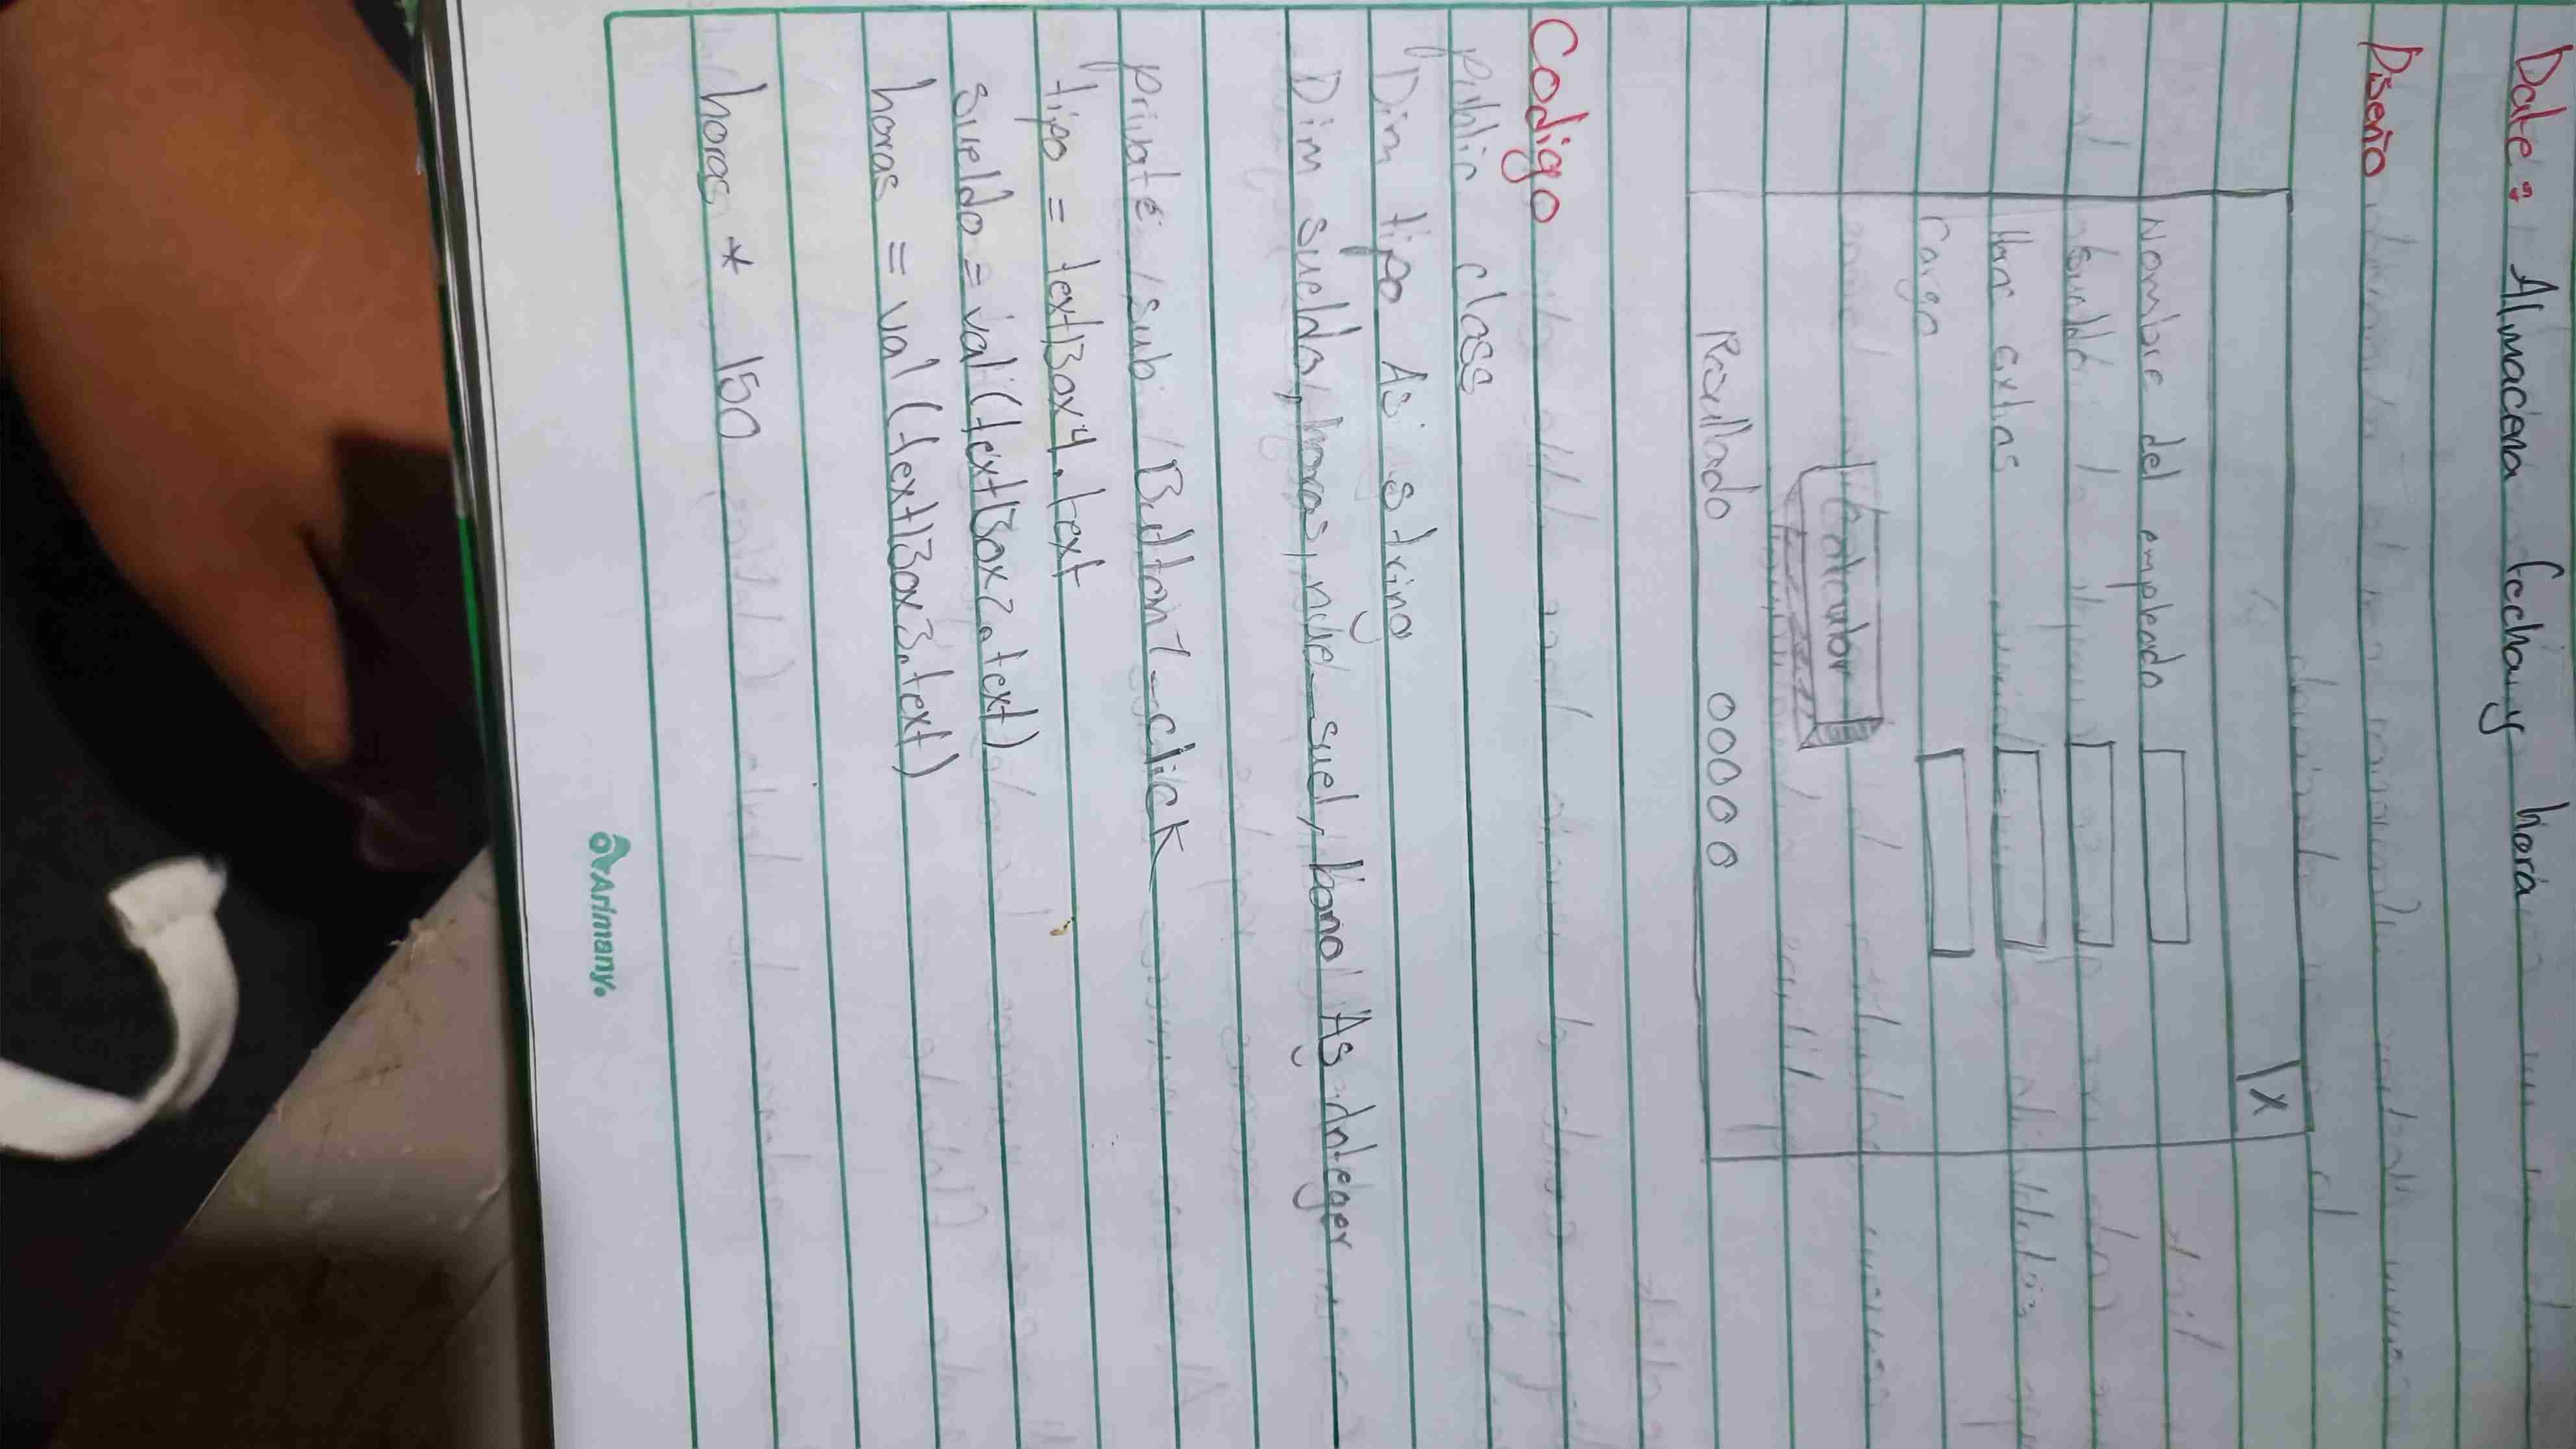 Date: Almacena fecha y hora
Diseño
X
Nombre del empleado
Sueldo
Horas extras
Cargo
Calcular
Resultado 00000
Codigo
public class
Dim tipo As string
Dim sueldo, horas, nue_suel, bono As integer
private sub Button1_click
tipo = textBox4.text
sueldo = val (textBox2.text)
horas = val (textBox3.text)
horas * 150
Arimany